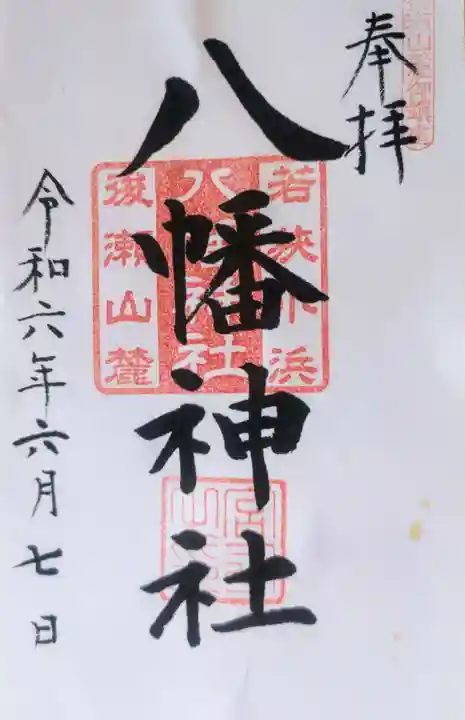 奉拝
八幡神社
令和六年六月七日
若狭小浜
八幡神社
後瀬山麓